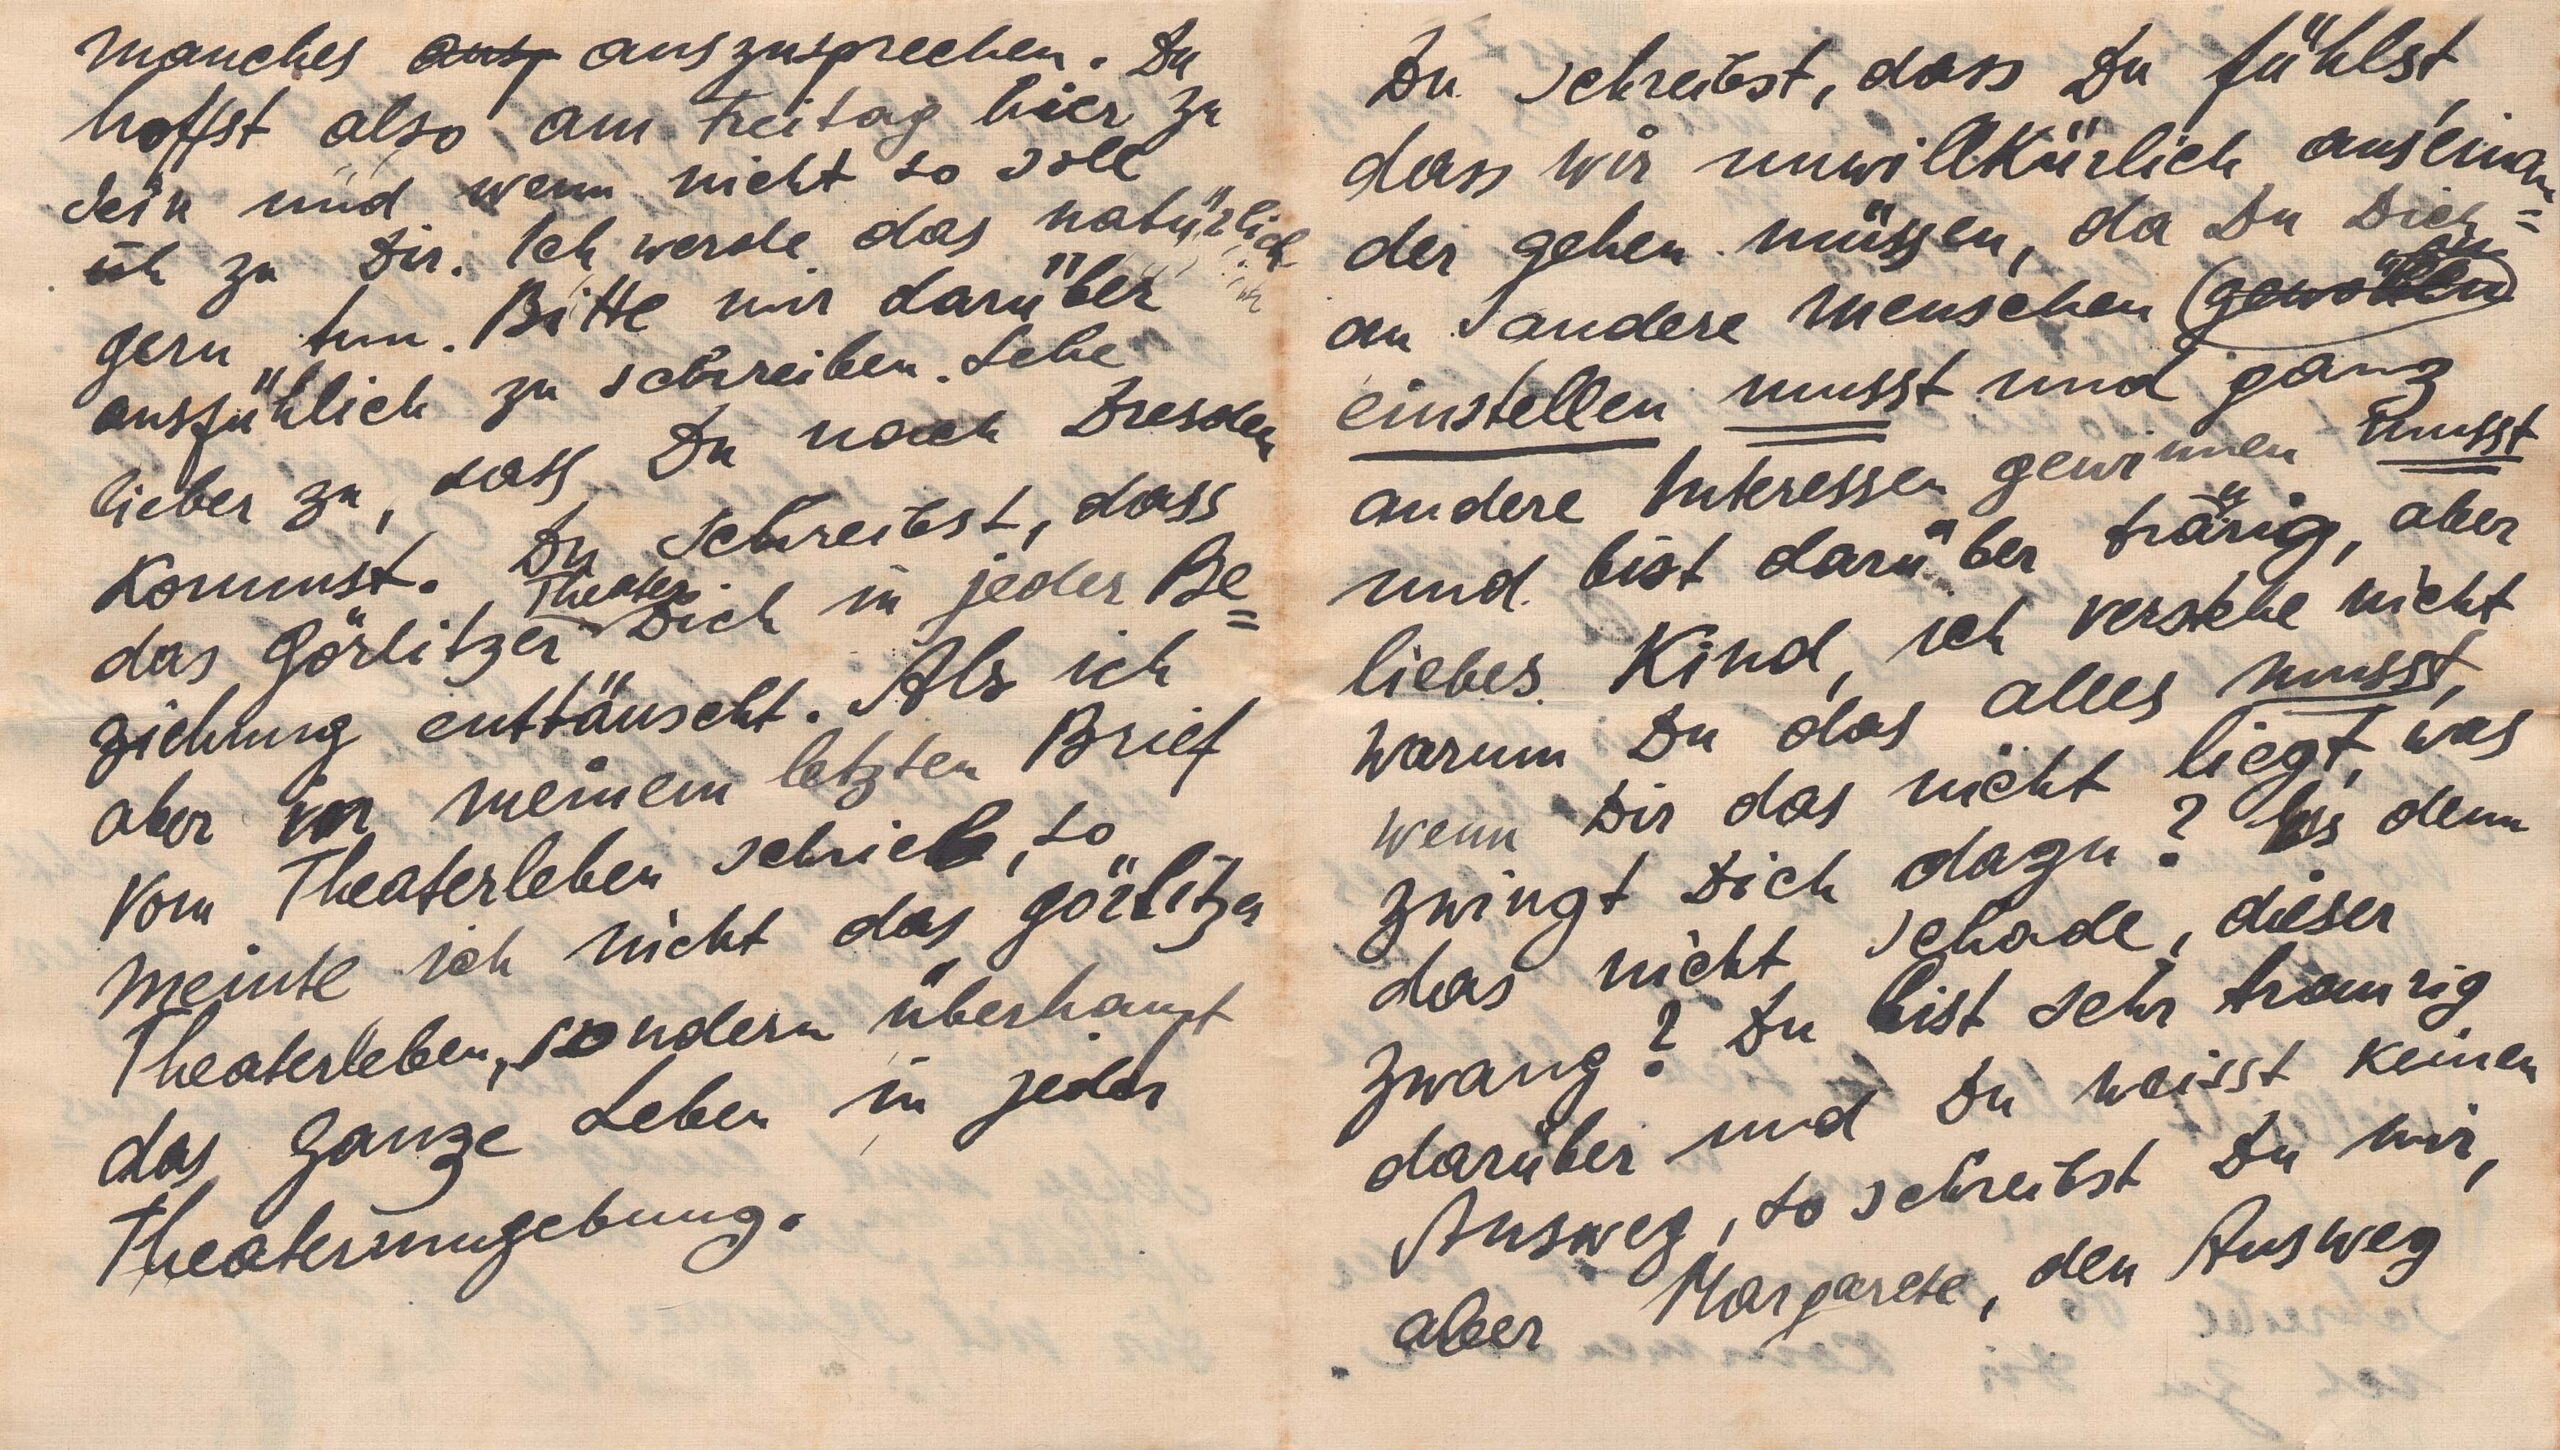 manches ausp auszusprechen. Du
hoffst also am Freitag hier zu
sein und wenn nicht so soll
ich zu Dir. Ich werde das natürlich
gern tun. Bitte mir darüber
ausfühlich zu schreiben. Sehe
lieber zu, dass Du nach Dresden
kommst. Du schreibst, dass
das Görlitzer Theater Dich in jeder Be=
ziehung enttäuscht. Als ich
aber in meinem letzten Brief
vom Theaterleben schrieb, so
meinte ich nicht das görlitzer
Theaterleben, sondern überhaupt
das ganze Leben in jeder
Theaterumgebung.
Du schreibst, dass Du fühlst,
dass wir unwillkürlich auseinan=
der gehen müssen, da Du Dich
an andere Menschen (gewöhnen)
einstellen musst und ganz
andere Interessen gewinnen musst
und bist darüber traurig, aber
liebes Kind, ich verstehe nicht
warum Du das alles musst,
wenn Dir das nicht liegt, was
zwingt Dich dazu? Is denn
das nicht schade, dieser
Zwang? Du bist sehr traurig
darüber und Du weisst keinen
Ausweg, so schreibst Du mir,
aber Margarete, den Ausweg